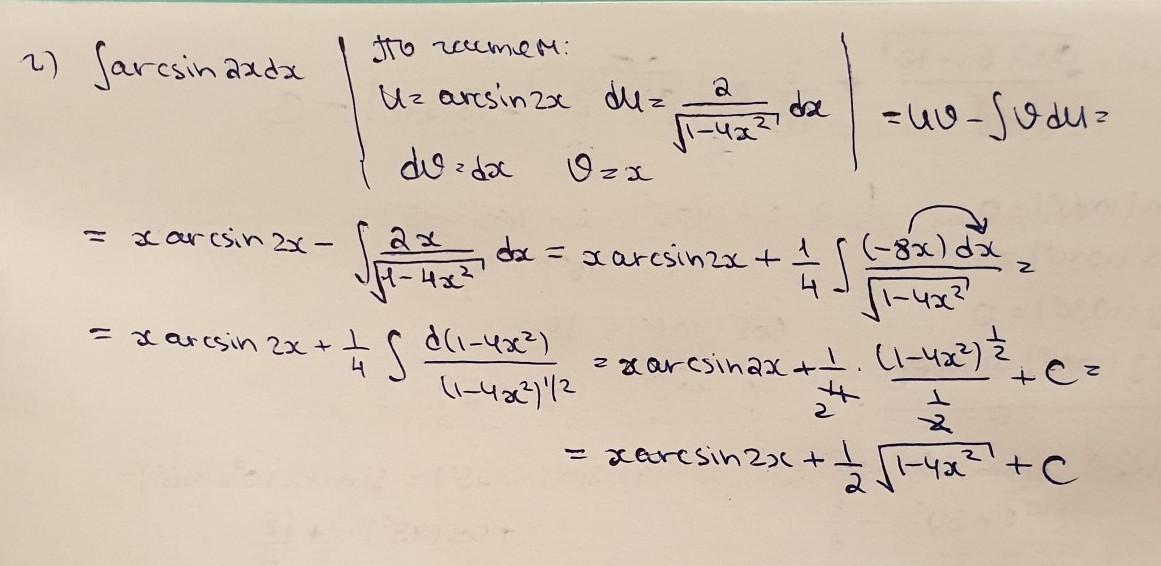 г) ∫arcsin2xdx | По частям: u= arcsin2x du= 2/√(1-4x²) dx dv=dx v=x | =uv-∫vdu=
= x arcsin 2x - ∫ 2x/√(1-4x²) dx = x arcsin2x + 1/4 ∫ (-8x)dx/√(1-4x²) =
= x arcsin 2x + 1/4 ∫ d(1-4x²)/(1-4x²)^1/2 = x arcsin2x + 1/4 2 · (1-4x²)^1/2/(1/2) + C =
= x arcsin2x + 1/2 √(1-4x²) + C